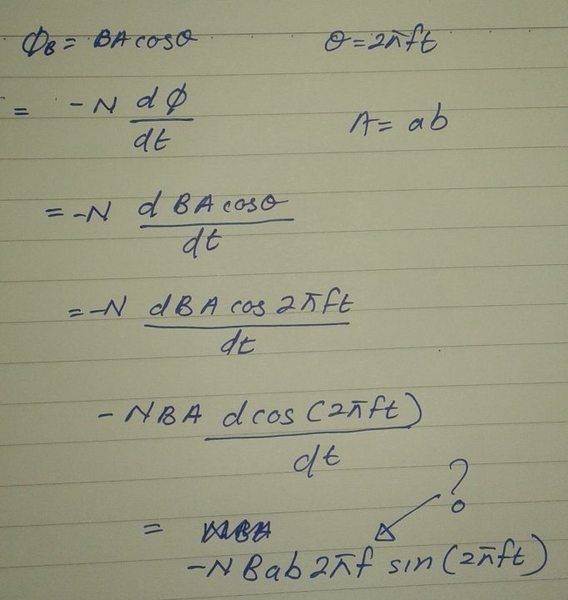 ΦB = BA cosθ    θ = 2πft
= -N dΦ/dt    A = ab
= -N d BA cosθ/dt
= -N dBA cos 2πft/dt
-NBA d cos (2πft)/dt
?
=
-N Bab 2πf sin (2πft)